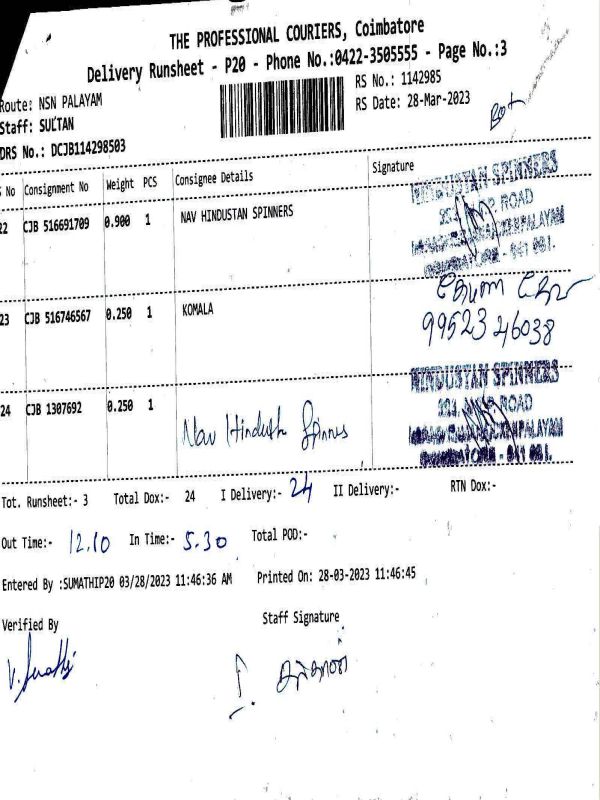 THE PROFESSIONAL COURIERS, Coimbatore
Delivery Runsheet - P20 - Phone No.:0422-3505555 - Page No.:3
Route: NSN PALAYAM
RS No.: 1142985
Staff: SULTAN
RS Date: 28-Mar-2023
DRS No.: DCJB114298503
No Consignment No Weight PCS Consignee Details Signature
22 CJB 516691709 0.900 1 NAV HINDUSTAN SPINNERS
HINDUSTAN SPINNERS
ROAD
23 CJB 516746567 0.250 1 KOMALA
99523 46038
24 CJB 1307692 0.250 1 Nav Hindustan Spinners
HINDUSTAN SPINNERS
ROAD
Tot. Runsheet:- 3 Total Dox:- 24 I Delivery:- 24 II Delivery:- RTN Dox:-
Out Time:- 12.10 In Time:- 5.30 Total POD:-
Entered By :SUMATHIP20 03/28/2023 11:46:36 AM Printed On: 28-03-2023 11:46:45
Verified By Staff Signature